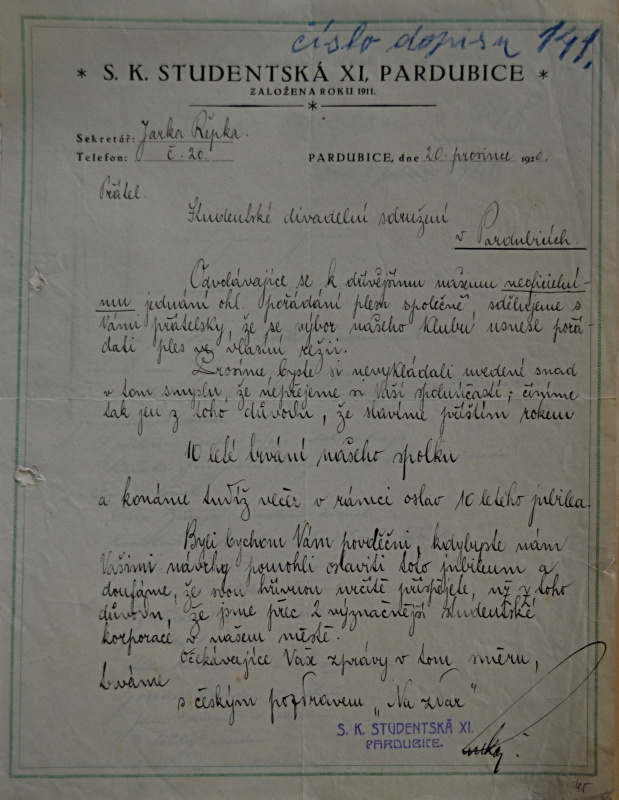 číslo dopisu 141.
* S. K. STUDENTSKÁ XI, PARDUBICE *
ZALOŽENA ROKU 1911.
Sekretář: Jarka Řepka.
Telefon: č. 20.
PARDUBICE, dne 20. prosince 1920.
Přátel.
Studentské divadelní sdružení
v Pardubicích.
Odvolávajíce se k dřívějšímu našemu neoficielní-
mu jednání ohl. pořádání plesu společně sdělujeme s
Vámi přátelsky, že se výbor našeho klubu usnesl pořá-
dati ples ve vlastní režii.
Prosíme, byste si nevykládali uvedení snad
v tom smyslu, že nepřejeme si Vaší spoluúčasti; činíme
tak jen z toho důvodu, že slavíme příštím rokem
10 leté trvání našeho spolku
a konáme tudíž večer v rámci oslav 10 letého jubilea.
Byli bychom Vám povděčni, kdybyste nám
Vašimi návrhy pomohli oslaviti toto jubileum a
doufáme, že svou hřivnou určitě přispějete, už z toho
důvodu, že jsme přec 2 význačnější studentské
korporace v našem městě.
Očekávajíce Vaše zprávy v tom směru,
trváme
s českým pozdravem „Na zdar"
S. K. STUDENTSKÁ XI.
PARDUBICE.
45